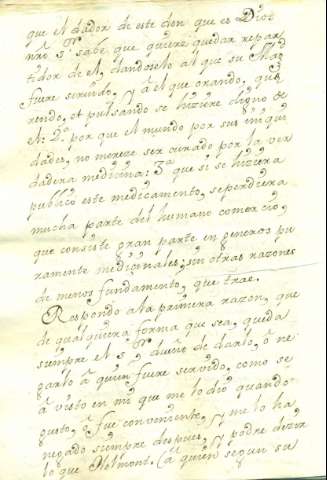 que el dador de este don que es Dios
nr̃o S.r sabe que quiere quedar repar
tidor de el, dandoselo al que su Mag.d
fuere servido, y à el que orando, que
rendo, et pulsando se hiziere digno de
el: 2.a por que el mundo por sus iniqui
dades, no merece ser curado por la ver
dadera medicina: 3.a que si se hiziera
publico este medicamento, se perdiera
mucha parte del humano comercio,
que consiste gran parte en generos pu
ramente medicinales; sin otras razones
de menos fundamento, que trae.
Respondo a la primera razon, que
de qualquiera forma que sea, queda
siempre el S.r dueño de darlo, ò ne
garlo à quien fuere servido, como se
à visto en mi que me lo dió quando
gusto, y fue conveniente, y me lo ha
negado siempre despues, y podre dezir
lo que Helmont. (à quien segun su